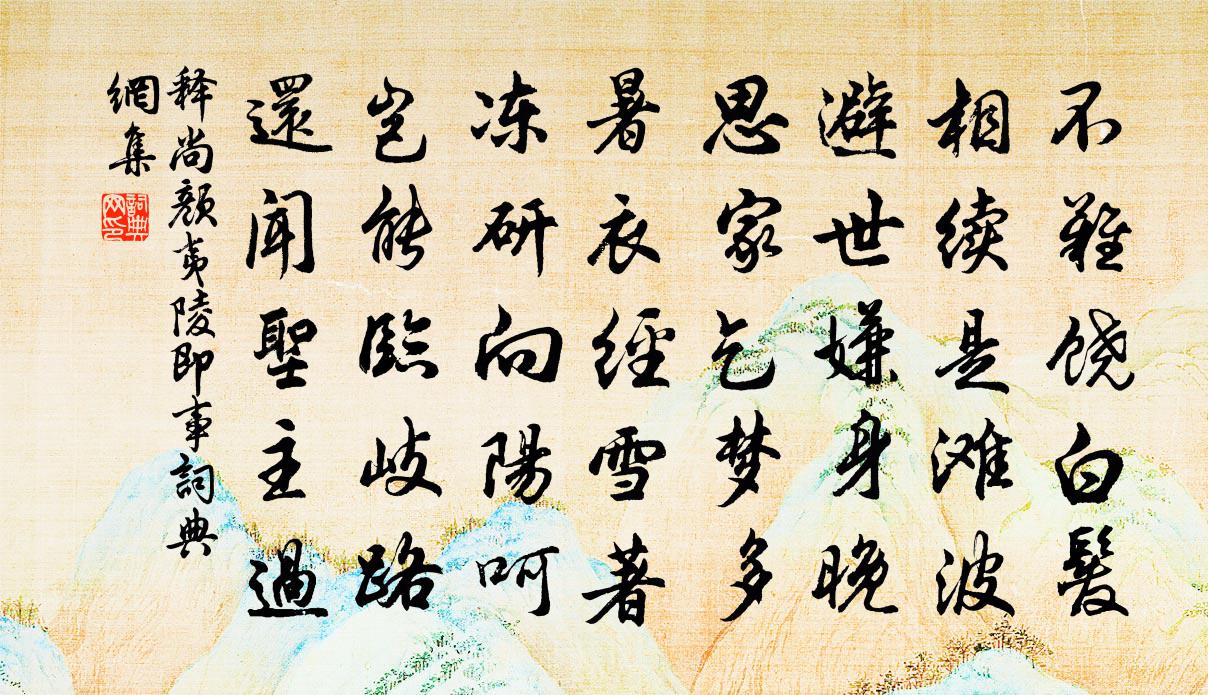 不難饶白髮
相续是滩波
避世嫌身晚
思家乞梦多
暑衣經雪著
冻研向陽呵
岂能臨岐路
還聞聖主過
释尚顏夷陵即事詞典
網集
詞典
网印